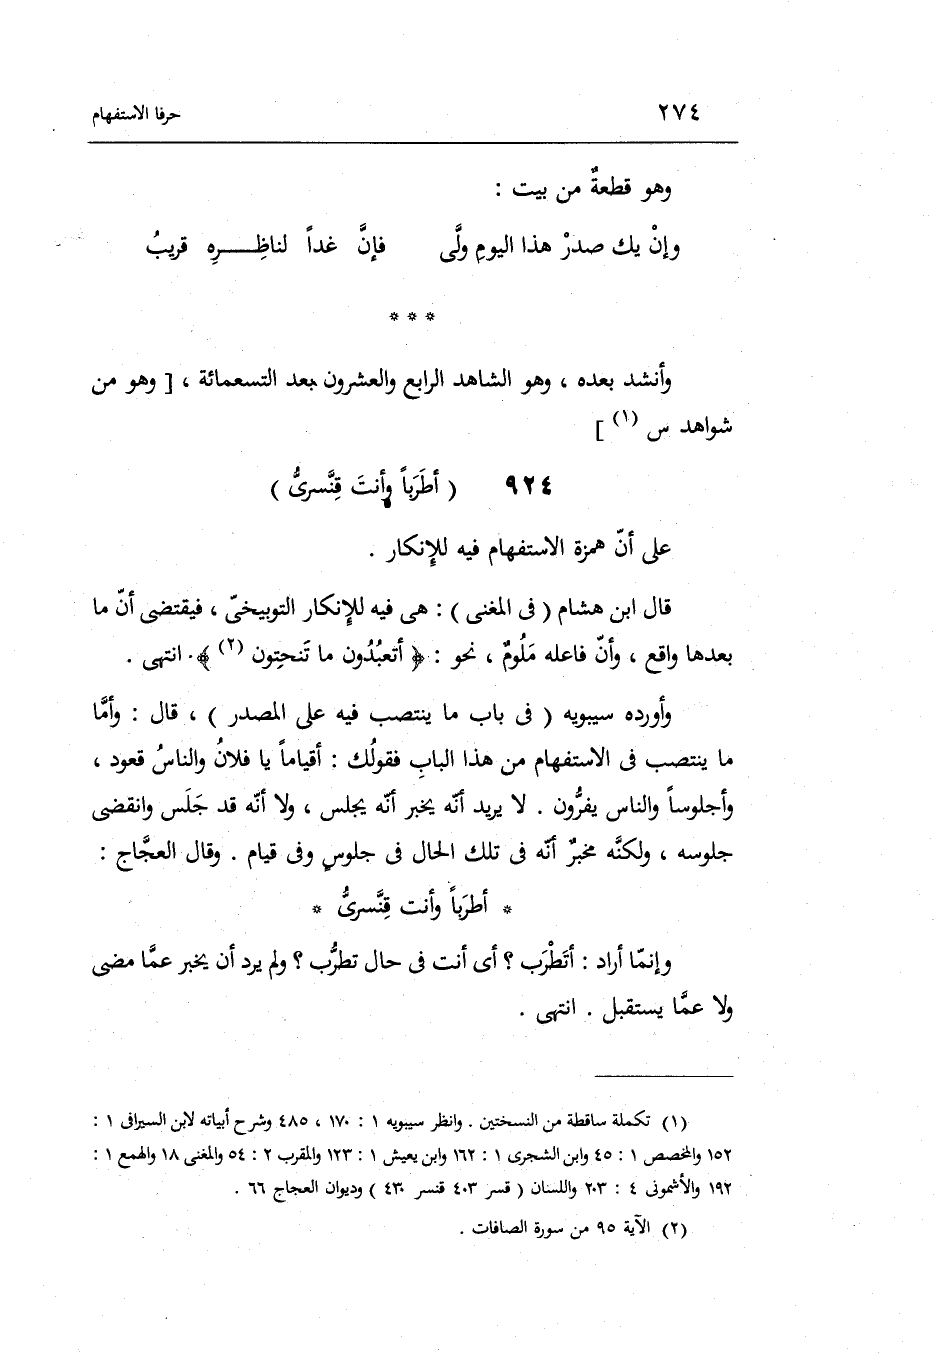 ٢٧٤ حرفا الاستفهام
وهو قطعةٌ من بيت :
وإنْ يك صدرْ هذا اليومِ ولَّى فإنَّ غداً لناظِـــرِهِ قريبُ
* * *
وأنشد بعده ، وهو الشاهد الرابع والعشرون بعد التسعمائة ، [ وهو من
شواهد س (١) ]
٩٢٤ ( أطَرَباً وأنتَ قِنَّسرىُّ )
على أنّ همزة الاستفهام فيه للإنكار .
قال ابن هشام ( فى المغنى ) : هى فيه للإنكار التوبيخىّ ، فيقتضى أنّ ما
بعدها واقع ، وأنّ فاعله مَلُومٌ ، نحو : ﴿ أتعبُدُون ما تَنحِتون (٢) ﴾. انتهى .
وأورده سيبويه ( فى باب ما ينتصب فيه على المصدر ) ، قال : وأمَّا
ما ينتصب فى الاستفهام من هذا البابِ فقولُك : أقياماً يا فلانُ والناسُ قعود ،
وأجلوساً والناس يفرُّون . لا يريد أنّه يخبر أنّه يجلس ، ولا أنّه قد جَلَس وانقضى
جلوسه ، ولكنَّه مخبرٌ أنّه فى تلك الحال فى جلوسٍ وفى قيام . وقال العجَّاج :
* أطرَباً وأنت قِنَّسرىُّ *
وإنمّا أراد : أتَطْرَب ؟ أى أنت فى حال تطرُّب ؟ ولم يرد أن يخبر عمَّا مضى
ولا عمَّا يستقبل . انتهى .
(١) تكملة ساقطة من النسختين . وانظر سيبويه ١ : ١٧٠ ، ٤٨٥ وشرح أبياته لابن السيرافى ١ :
١٥٢ والمخصص ١ : ٤٥ وابن الشجرى ١ : ١٦٢ وابن يعيش ١ : ١٢٣ والمقرب ٢ : ٥٤ والمغنى ١٨ والهمع ١ :
١٩٢ والأشمونى ٤ : ٢٠٣ واللسان ( قسر ٤٠٣ قنسر ٤٣٠ ) وديوان العجاج ٦٦ .
(٢) الآية ٩٥ من سورة الصافات .